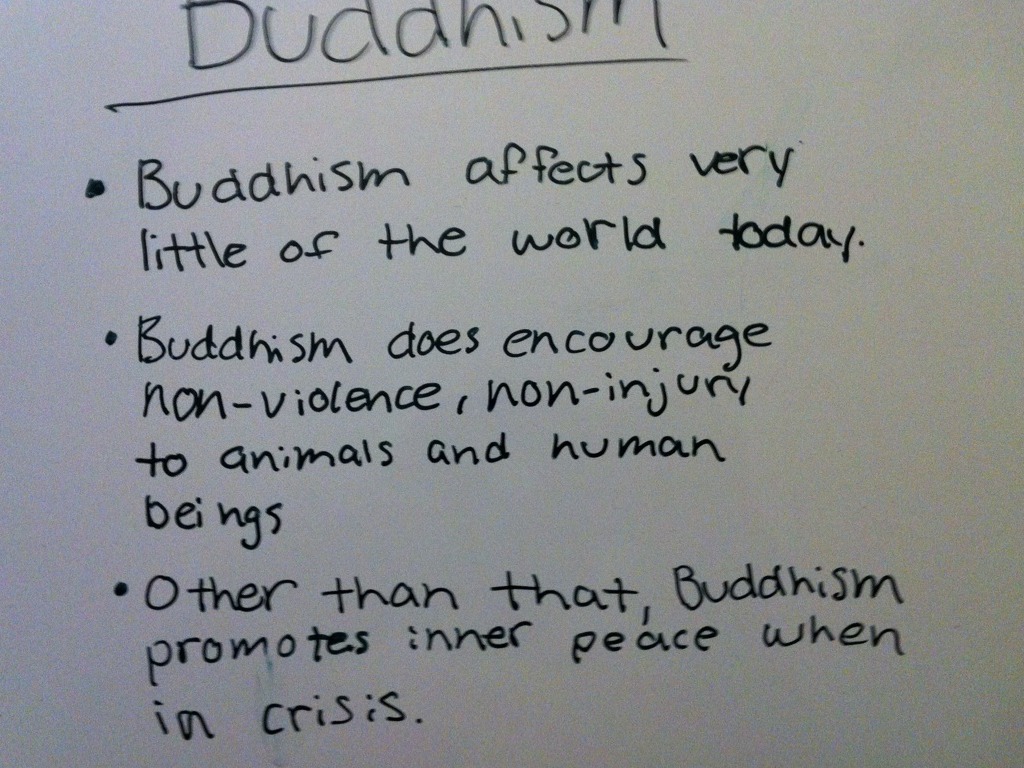 Buddhism
• Buddhism affects very
little of the world today.
• Buddhism does encourage
non-violence, non-injury
to animals and human
beings
• Other than that, Buddhism
promotes inner peace when
in crisis.